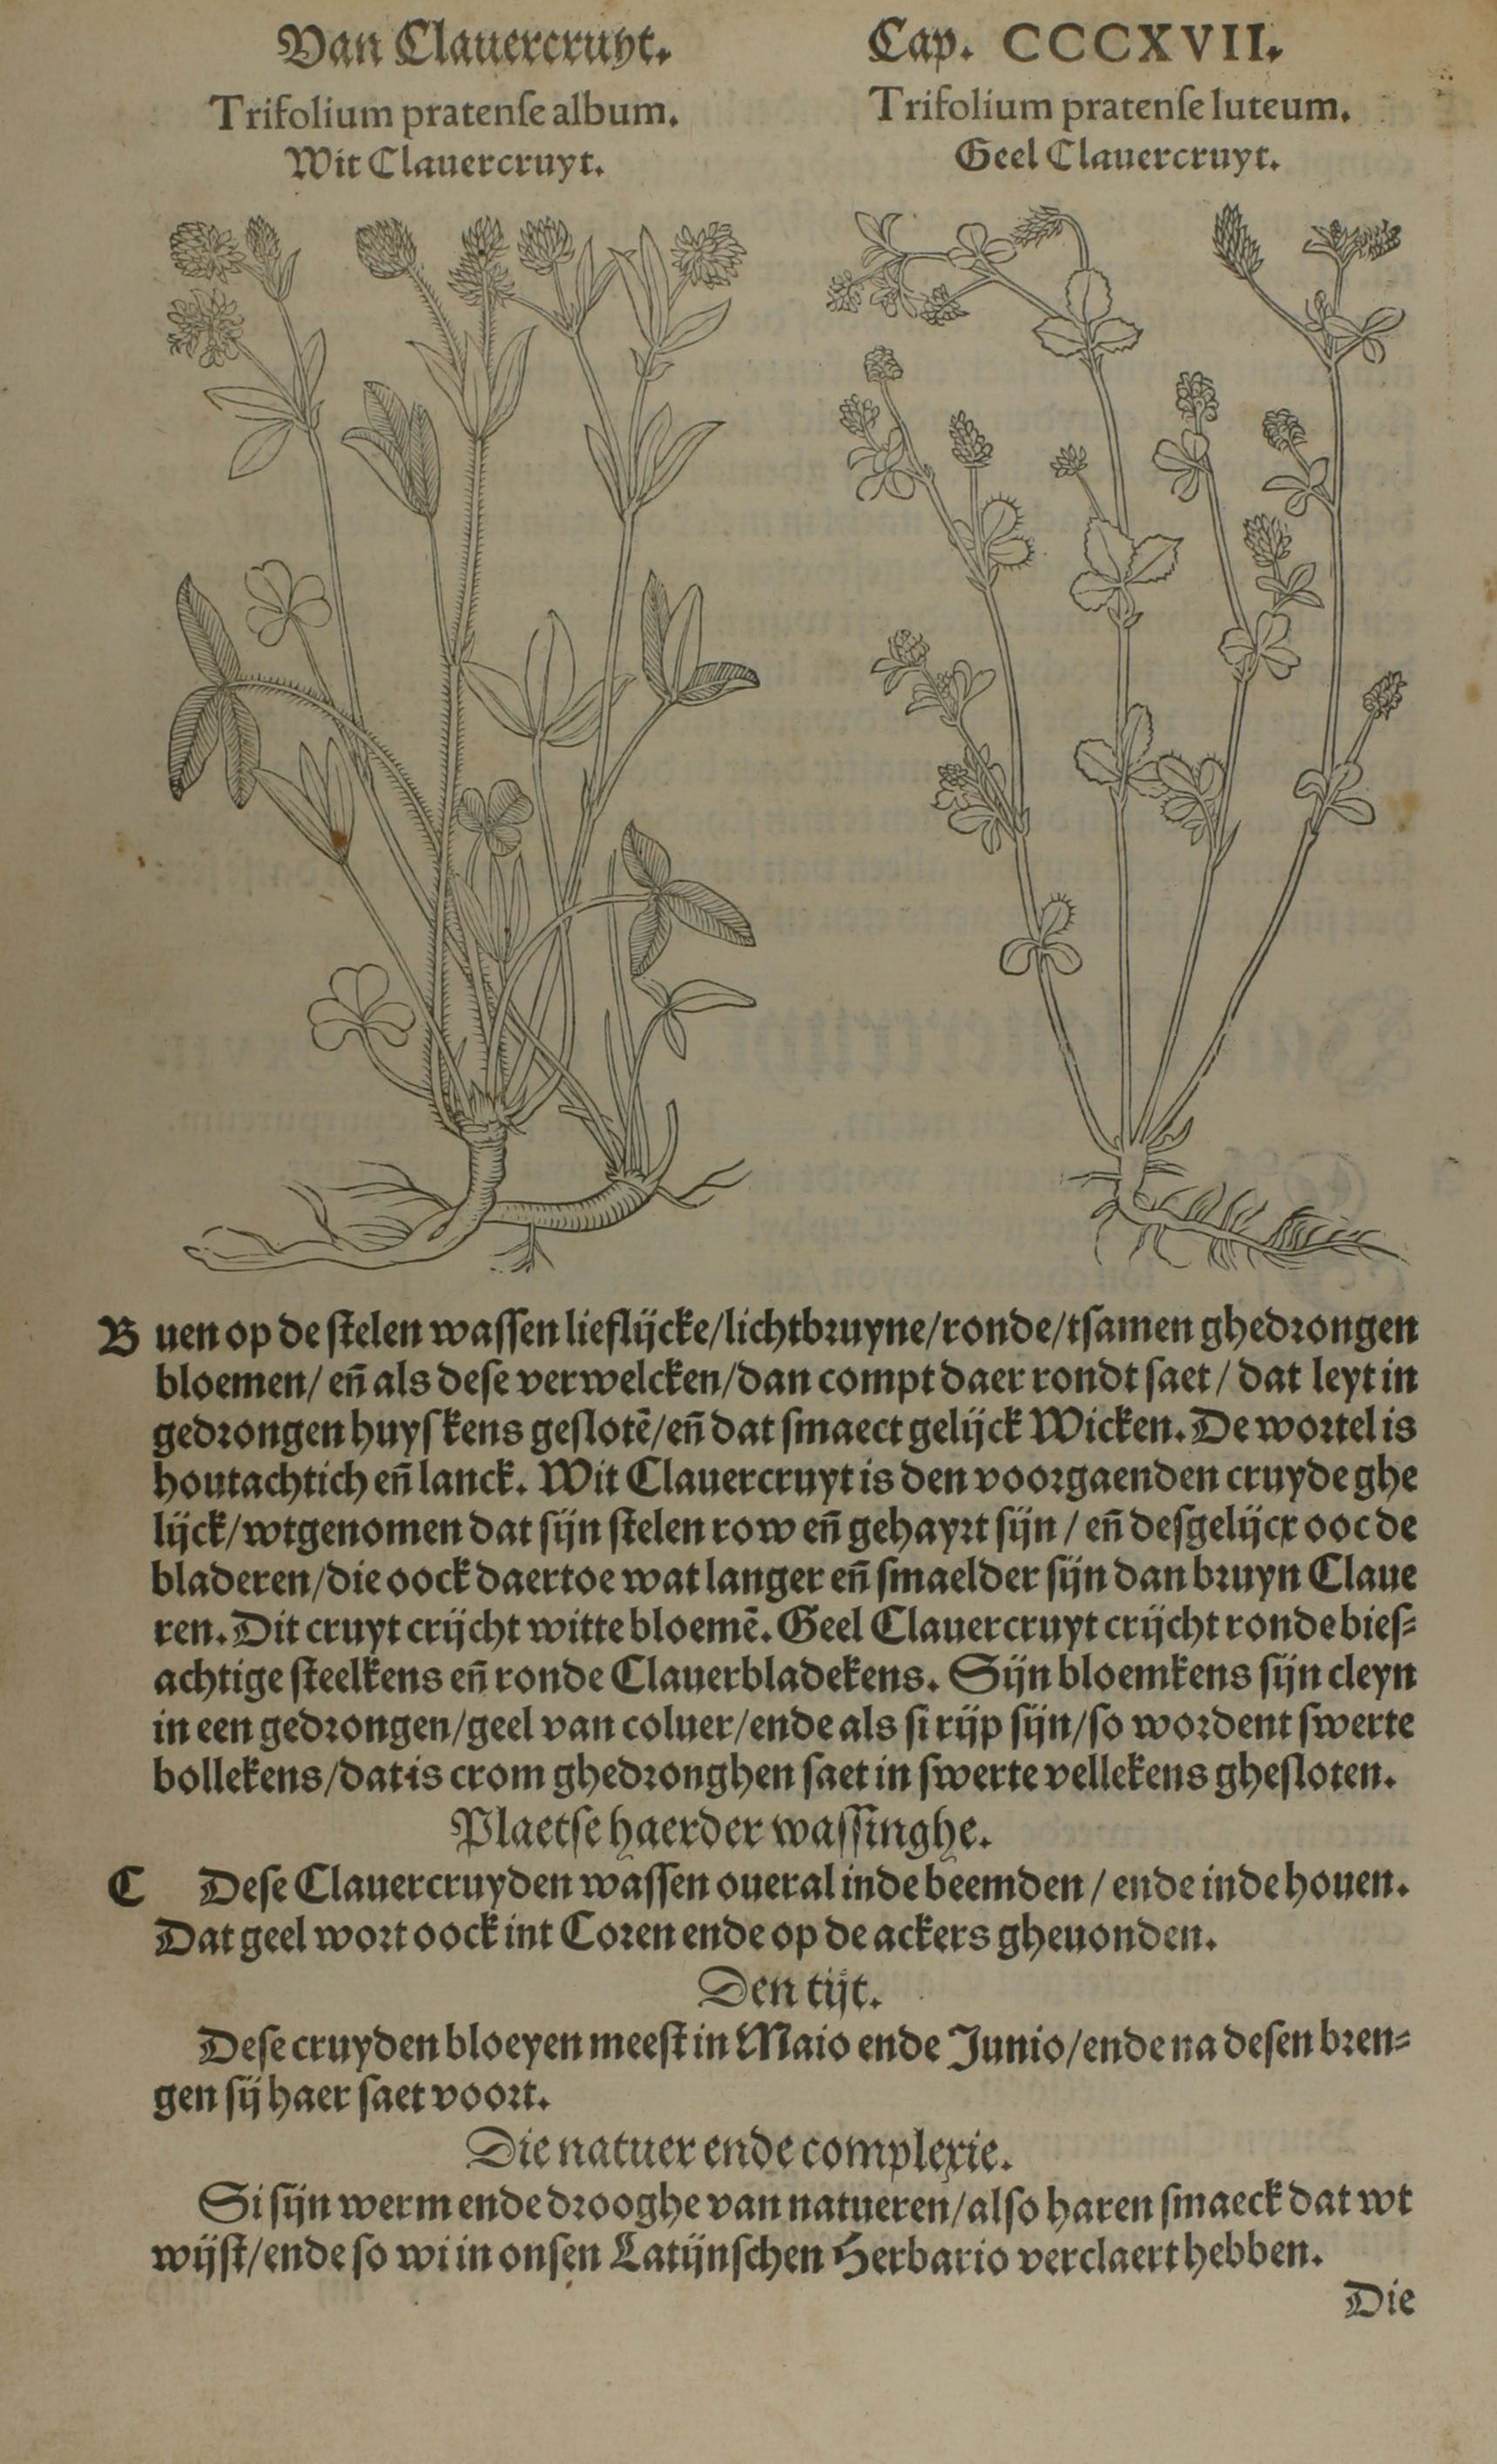 Van Clauercruyt. Cap. CCCXVII.
Trifolium pratenſe album.
Wit Clauercruyt.
Trifolium pratenſe luteum.
Geel Clauercruyt.
B uen op de ſtelen waſſen lieflijcke/lichtbruyne/ronde/tſamen ghedrongen
bloemen/ eñ als deſe verwelcken/dan compt daer rondt ſaet/ dat leyt in
gedrongen huyſkens geſlotẽ/eñ dat ſmaect gelijck Wicken. De wortel is
houtachtich eñ lanck. Wit Clauercruyt is den voorgaenden cruyde ghe
lijck/wtgenomen dat ſijn ſtelen row eñ gehayrt ſijn / eñ deſgelijcx ooc de
bladeren/die oock daertoe wat langer eñ ſmaelder ſijn dan bruyn Claue
ren. Dit cruyt crijcht witte bloemẽ. Geel Clauercruyt crijcht ronde bieſ⸗
achtige ſteelkens eñ ronde Clauerbladekens. Sijn bloemkens ſijn cleyn
in een gedrongen/geel van coluer/ende als ſi rijp ſijn/ſo wordent ſwerte
bollekens/dat is crom ghedronghen ſaet in ſwerte vellekens gheſloten.
Plaetſe haerder waſſinghe.
C Deſe Clauercruyden waſſen oueral inde beemden / ende inde houen.
Dat geel wort oock int Coren ende op de ackers gheuonden.
Den tijt.
Deſe cruyden bloeyen meeſt in Maio ende Junio/ende na deſen bren⸗
gen ſij haer ſaet voort.
Die natuer ende complexie.
Si ſijn werm ende drooghe van natueren/alſo haren ſmaeck dat wt
wijſt/ende ſo wi in onſen Latijnſchen Herbario verclaert hebben.
Die